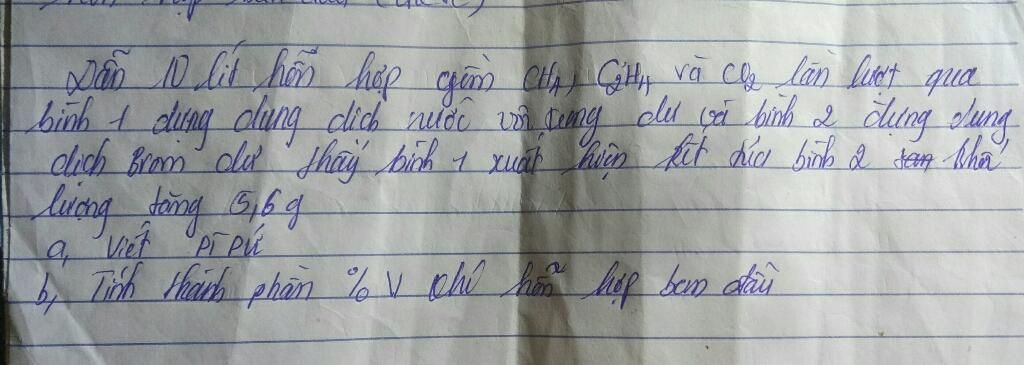 Dẫn 10 lít hỗn hợp gồm CH4, C2H4 và CO2 lần lượt qua
bình 1 đựng dung dịch nước vôi trong dư và bình 2 đựng dung
dịch Brom dư thấy bình 1 xuất hiện kết tủa bình 2 khối
lượng tăng 5,6 g
a, Viết PTPỨ
b, Tính thành phần % V hỗn hợp ban đầu